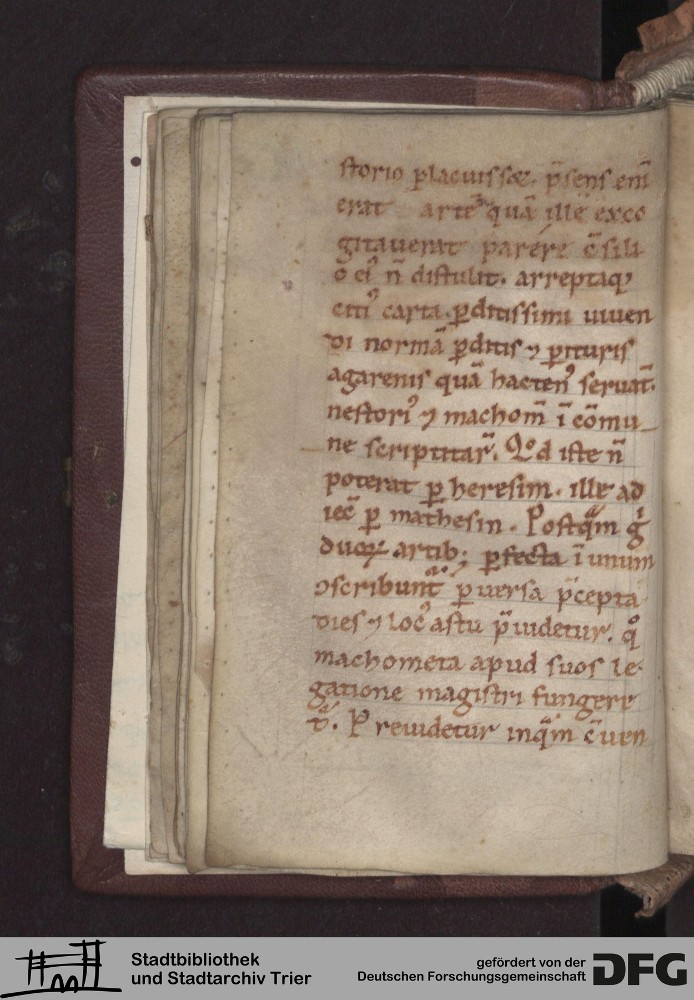 storio placuisset. p̄sens eni
erat arte quā ille exco
gitauerat parere c̄sili
ō ei⁹ n̄ distulit. arreptaq;
citi⁹ carta. ꝑditissimi uiuen
di normā ꝑditis ⁊ ꝑituris
agarenis quā hacten⁹ seruāt.
nestori⁹ ⁊ machom̄ ī cōmu
ne scriptitar̄. Qd iste n̄
poterat ꝑ heresim. ille ad
iec̄ ꝑ mathesin. Postqͣm gͥ
duoꝝ artib; ꝑfecta ī unum
ꝯscribunt̄ ꝑuersa p̄cepta
dies ⁊ loc⁹ astu p̄uidetur. qͦ
machometa apud suos le
gatione magistri fungere
t᷑. Preuidetur inqͣm c̄uen
Stadtbibliothek
und Stadtarchiv Trier
gefördert von der
Deutschen Forschungsgemeinschaft
DFG